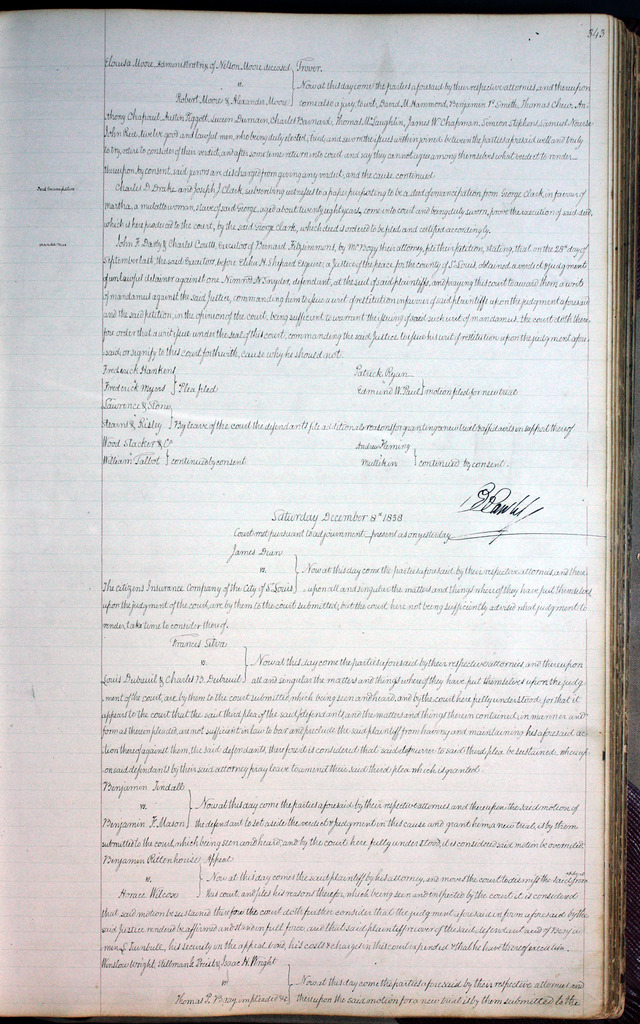 343
Elouisa Moore, Administratrix of Nelson Moore deceased } Trover.
vs. } Now at this day come the parties aforesaid by their respective attornies, and thereupon
Robert Moore & Alexander Moore } comes also a jury, to wit, David M. Hammond, Benjamin Smith, Thomas An-
thony Chapaul, Austin Piggott, Charles Barnard, Thomas McLaughlin, James W. Chapman, Simeon Stephens, Samuel
John twelve good and lawful men, who being duly elected, tried, and sworn the issues within joined between the parties aforesaid well and truly
to try, retire to consider of their verdict, and after some time return into court and say they cannot agree among themselves what verdict to render
thereupon by consent, said jurors are discharged from giving any verdict, and the cause continued.
Deed Emancipation
Charles D. Drake and Joseph J. Clark, subscribing witnesses to a paper purporting to be a deed of emancipation from George Clark in favour of
Martha, a mulatto woman, slave of said George, aged about twenty eight years, come into court and being duly sworn, prove the execution of said deed,
which is here produced to the court, by the said George Clark, which deed is ordered to be filed and certified accordingly.
Mandamus
John F. Darby & Charles Execution of Bernard Fitzsimmons, by Mr. Bogy their attorney, file their petition, stating, that on the 28th day of
September last, the said Executor, before Elihu H. Shepard Esquire, a Justice of the peace for the county of St. Louis, obtained a verdict & judgment
of unlawful detainer against one Nimrod N. Snyder, defendant, at the suit of said plaintiffs, and praying this court to award them a writ
of mandamus against the said Justice, commanding him to issue a writ of restitution in favour of said plaintiffs upon the judgment aforesaid
and the said petition, in the opinion of the court, being sufficient to warrant the issuing of said such writ of mandamus, the court doth there-
fore order that a writ issue under the seal of this court, commanding the said Justice, to issue his writ of restitution upon the judgment afore-
said, or signify to this court forthwith, cause why he should not.
Frederick Hankens
vs.
Frederick Myers } Plea filed
Patrick Ryan
vs.
Edmund W. Paul } motion filed for new trial
Lawrence & Stone,
vs.
Stearns & Risley } By leave of the court the defendants file additional reasons for granting a new trial & affidavits in support thereof
Wood Stacker & Co
vs.
William Talbot } continued by consent
Andrew Fleming
vs.
Mullikin } continued by consent.
Saturday December 8th 1838
Court met pursuant to adjournment — present as on yesterday
James Dean
vs. } Now at this day come the parties aforesaid by their respective attornies, and there-
The citizens Insurance Company of the City of St. Louis } upon all and singular the matters and things whereof they have put themselves
upon the judgment of the court, are by them to the court submitted; but the court here not being sufficiently advised what judgment to
render, take time to consider thereof.
Frances Silva
vs. } Now at this day come the parties aforesaid by their respective attornies and thereupon
Louis Dubreuil & Charles B. Dubreuil } all and singular the matters and things whereof they have put themselves upon the judg-
ment of the court, are by them to the court submitted, which being seen and heard, and by the court here fully understood; for that it
appears to the court that the said third plea of the said defendants, and the matters and things therein contained, in manner and
form as therein pleaded, are not sufficient in law to bar and preclude the said plaintiff from having and maintaining his aforesaid ac-
tion thereof against them, the said defendants, therefore it is considered that said demurrer to said third plea be sustained, whereup-
on said defendants by their said attorney pray leave to amend their said third plea which is granted.
Benjamin Tindall
vs. } Now at this day come the parties aforesaid by their respective attornies and thereupon the said motion of
Benjamin F. Mason } the defendant to set aside the verdict & judgment in this cause and grant him a new trial, is by them
submitted to the court, which being seen and heard, and by the court here fully understood, it is considered said motion be overruled.
Benjamin Rittenhouse } Appeal
vs. } Now at this day comes the said plaintiff by his attorney, and moves the court to dismiss the said appeal from
Horace Wilcox } this court, and files his reasons therefor, which being seen and inspected by the court it is considered
that said motion be sustained therefore the court doth further consider that the judgment aforesaid in form aforesaid by the
said Justice rendered be affirmed and stand in full force, and that said plaintiff recover of the said defendant and of Benja-
min S. Turnbull, his security in the appeal bond, his costs & charges in this court expended & that he have thereof execution.
Winslow Wright, Pruitt, Isaac H. Wright
vs } Now at this day come the parties aforesaid by their respective attornies and
Thomas P. Bray impleaded &c } thereupon the said motion for a new trial is by them submitted to the